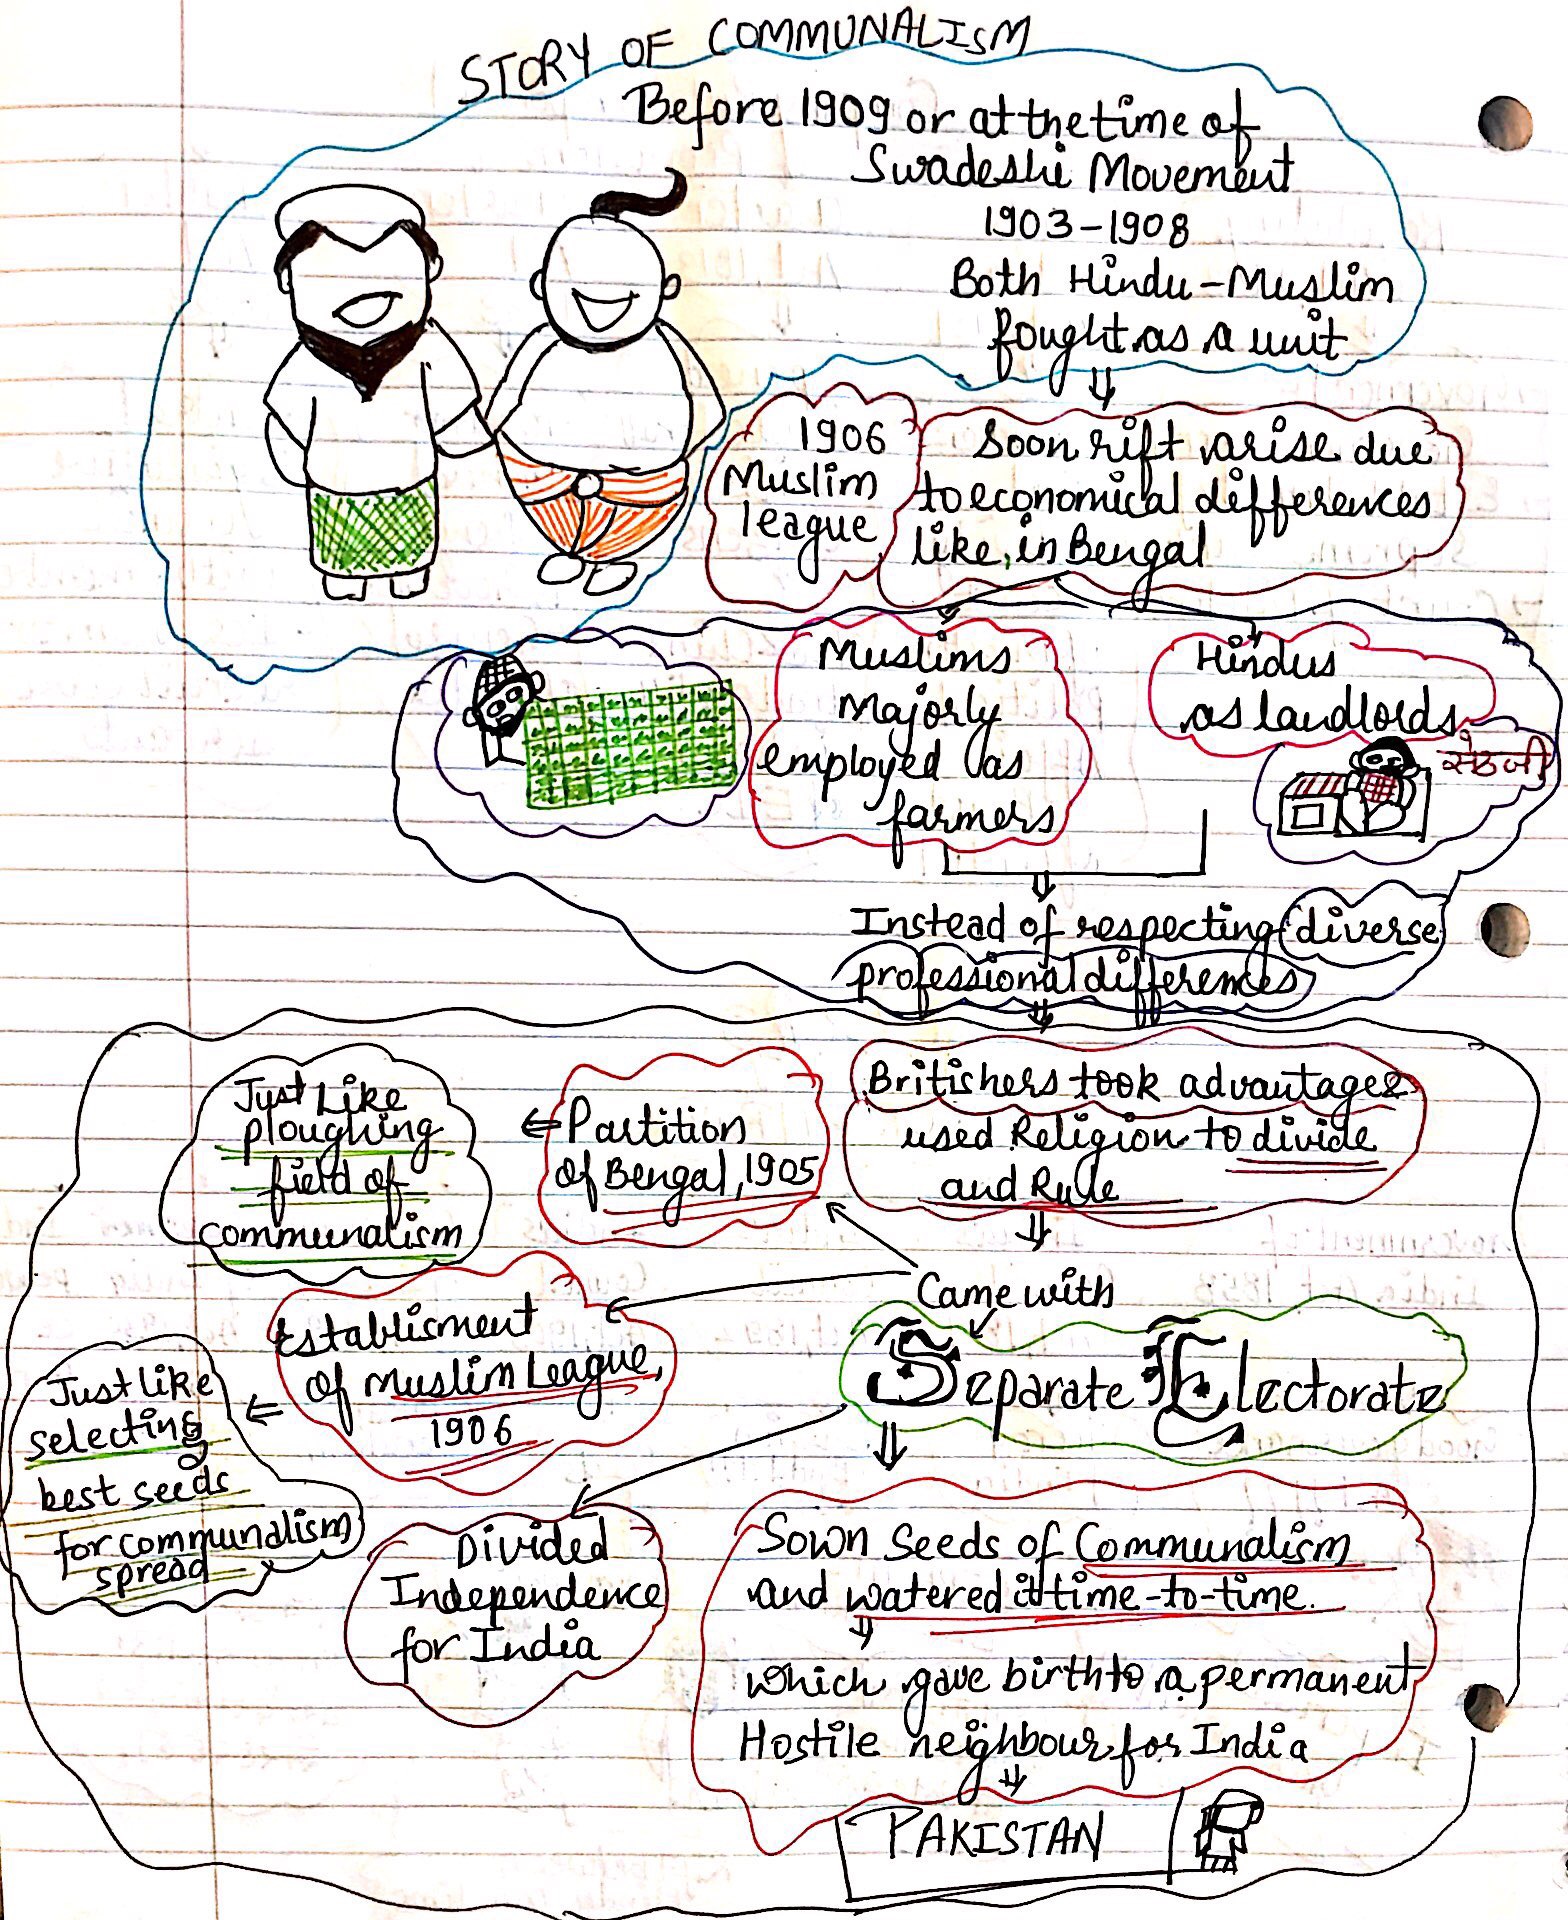 STORY OF COMMUNALISM
Before 1909 or at the time of
Swadeshi Movement
1903-1908
Both Hindu-Muslim
fought as a unit
1906
Muslim
league
Soon rift arise due
to economical differences
like, in Bengal
Muslims
Majorly
employed as
farmers
Hindus
as landlords
सेठजी
Instead of respecting diverse
professional differences
Britishers took advantages
used Religion to divide
and Rule
Partition
of Bengal, 1905
Just Like
ploughing
field of
communalism
Came with
Separate Electorate
Establisment
of Muslim League,
1906
Just like
selecting
best seeds
for communalism
spread
Divided
Independence
for India
Sown Seeds of Communalism
and watered it time-to-time.
which gave birth to a permanent
Hostile neighbour for India
PAKISTAN